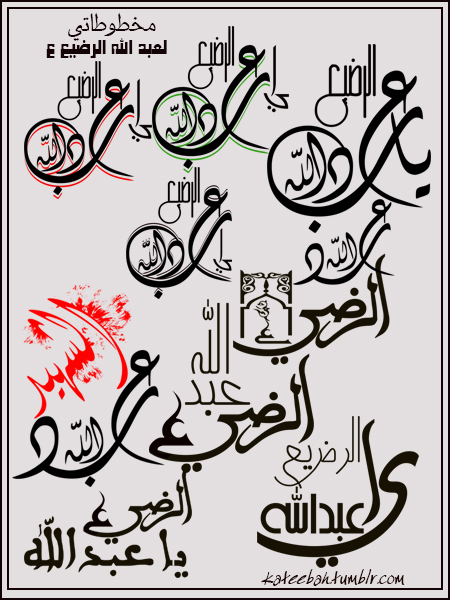 مخطوطاتي
لعبد الله الرضيع ع
الرضيع
يا عبد الله
الرضيع
يا عبد الله
الرضيع
يا عبد الله
الرضيع
يا عبد الله
عبد الله
الرضيع
الشهيد
عبد الله
عبد الله
الرضيع
الرضيع
يا عبدالله
الرضيع
يا عبد الله
kateebah.tumblr.com